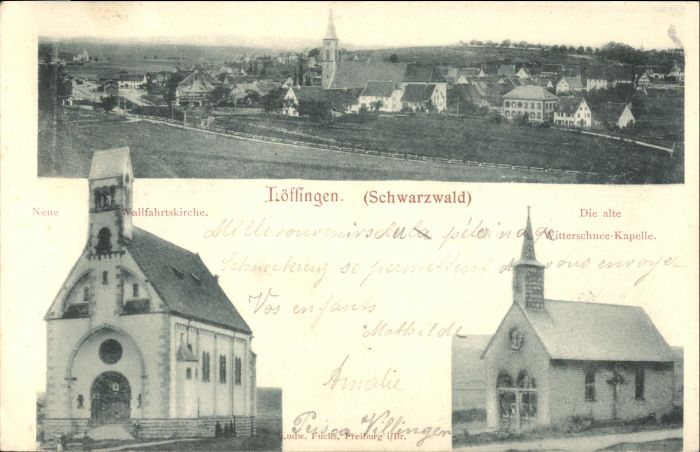 Löffingen. (Schwarzwald)
Neue Wallfahrtskirche.
Die alte
Witterschnee-Kapelle.
Mille souvenirs du pélerinage
Schneekreuz se permettent de vous envoyer
Vos enfants
Mathilde
Amalie
Prisca Villinger
Ludw. Fuchs, Freiburg i/Br.